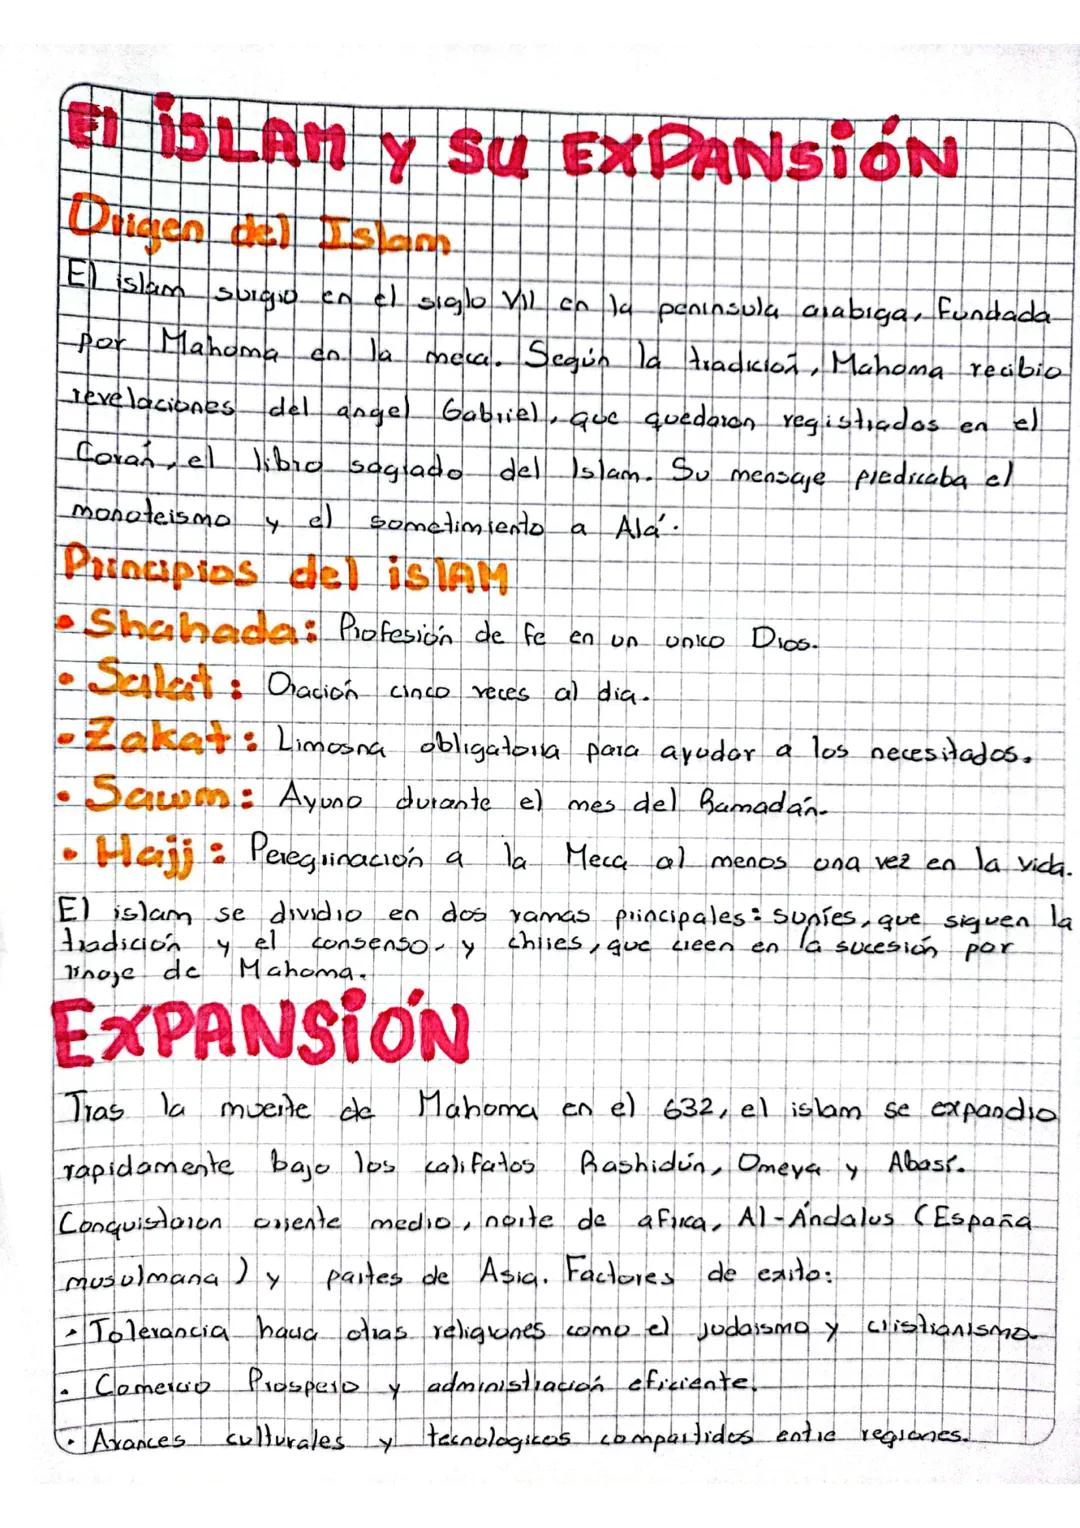 El iSLAM y SU EXPANSIÓN
Origen del Islam
El islam surgio en el siglo VII en la peninsula arabiga, Fundada
por Mahoma en la meca. Según la tradición, Mahoma recibio
revelaciones del angel Gabriel, que quedaron registrados en el
Corán, el libro sagrado del Islam. Su mensaje predicaba el
monoteismo y el sometimiento a Alá.
Principios del islAM
• Shahada: Profesión de fe en un unico Dios.
• Salat: Oración cinco veces al dia.
• Zakat: Limosna obligatoria para ayudar a los necesitados.
• Sawm: Ayuno durante el mes del Ramadán.
• Hajj: Peregrinación a la Meca al menos una vez en la vida.
El islam se dividio en dos ramas principales: suníes, que siguen la
tradición y el consenso, y chiies, que creen en la sucesión por
linaje de Mahoma.
EXPANSIÓN
Tras la muerte de Mahoma en el 632, el islam se expandio
rapidamente bajo los califatos Rashidún, Omeya y Abasí.
Conquistaron oriente medio, norte de africa, Al-Ándalus (España
musulmana) y partes de Asia. Factores de exito:
• Tolerancia hacia otras religiones como el judaismo y cristianismo.
• Comercio Prospero y administración eficiente.
• Avances culturales y tecnologicos compartidos entre regiones.